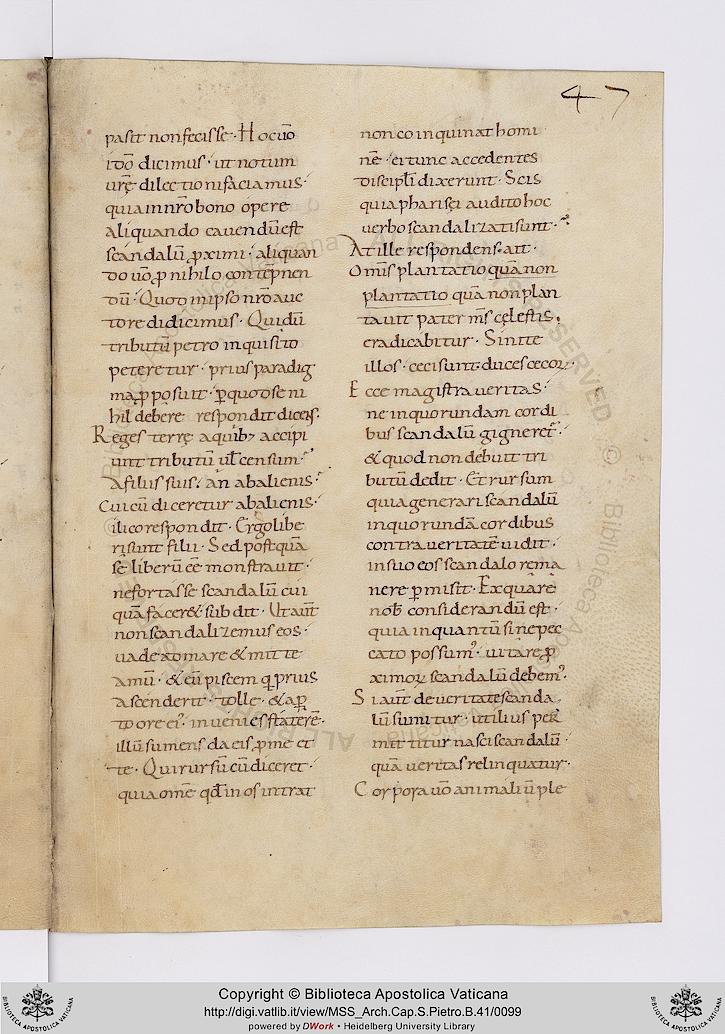 47
pasit non fecisse · Hoc uo
ido dicimus · ut notum
urę dilectioni faciamus ·
quia in nro bono opere
aliquando cauendū est
scandalū ꝓximi · aliquan
do uō ꝓ nihilo contēpnen
dū · Quot in ipso nro auc
tore didicimus · Qui dū
tributū petro inquisito
peteretur · prius paradig
ma ꝓposuit · ꝑ quot se ni
hil debere respondit dicens.
Reges terrę a quibꝫ accipi
unt tributū uł censum ·
a filiis suis · an ab alienis ·
Cui cū diceretur ab alienis ·
ilico respondit · Ergo libe
ri sunt filii · Sed postquā
sē liberū eē monstrauit ·
ne fortasse scandalū cui
quā faceret · subdit · Ut aūt
non scandalizemus eos ·
uade ad mare & mitte
amū · & eū piscem q̄ prius
ascenderit · tolle · & aꝑ
to ore eiꝰ inuenies staterē ·
illū sumens da eis ꝓ me et
te · Qui rursū cū diceret ·
quia omē qđ in os intrat
non coinquinat homi
nē · ei tunc accedentes
discipłi dixerunt · Scis
quia pharisęi audito hoc
uerbo scandalizati sunt ·
At ille respondens · ait ·
Omīs plantatio quā non
plantatio quā non plan
tauit pater ms cęlestis ·
eradicabitur · Sinite
illos · ceci sunt duces cecoꝝ ·
Ecce magistra ueritas ·
ne in quorundam cordi
bus scandalū gigneret ·
& quod non debuit tri
butū dedit · Et rursum
quia generari scandalū
in quorundā cordibus
contra ueritatē uidit ·
in suo eos scandalo rema
nere ꝑmisit · Ex qua re
nob considerandū est ·
quia inquantū sine pec
cato possumꝰ · uitare ꝓ
ximoꝝ scandalū debemꝰ.
Si aūt de ueritate scanda
lū sumitur · utilius per
mittitur nasci scandalū ·
quā ueritas relinquatur ·
Corpora uō animaliū ple
Copyright © Biblioteca Apostolica Vaticana
http://digi.vatlib.it/view/MSS_Arch.Cap.S.Pietro.B.41/0099
powered by DWork • Heidelberg University Library